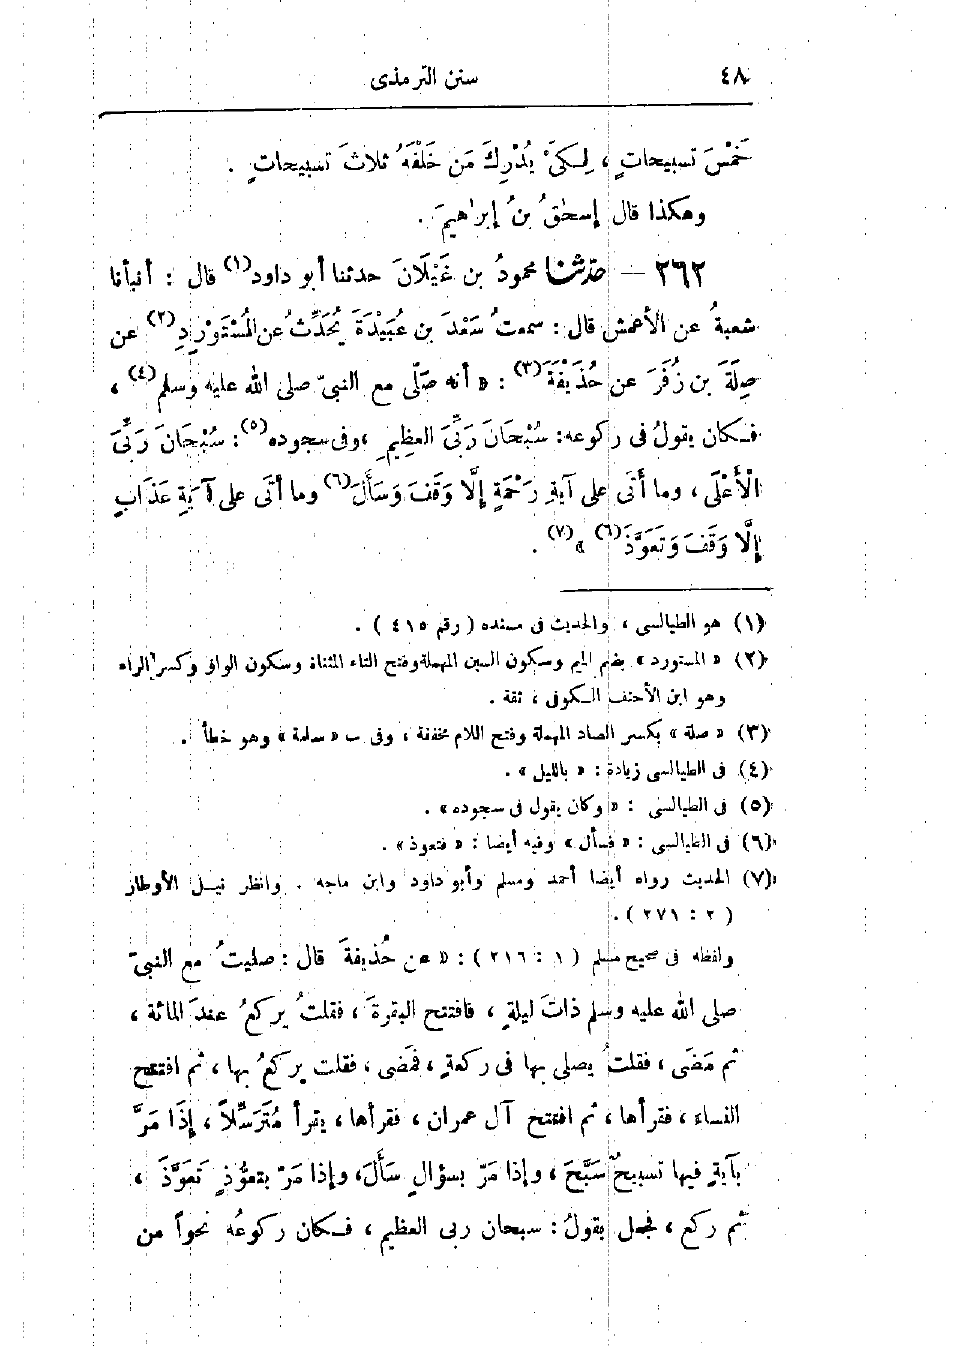 ٤٨ سنن الترمذى
خَمْسَ تسبيحاتٍ ، لِكَىْ يُدْرِكَ مَن خَلْفَهُ ثلاثَ تسبيحاتٍ .
وهكذا قال إسحٰقُ بنُ إبراهيمَ .
٢٦٢ — حدّثنا محمودُ بن غَيْلَانَ حدثنا أبو داود(١) قال : أنبأنا
شعبةُ عن الأعمش قال : سمعتُ سَعْدَ بن عُبَيْدَةَ يُحَدِّثُ عن المُسْتَوْرِدِ(٢) عن
صِلَةَ بن زُفَرَ عن حُذَيفَةَ(٣) : « أنه صَلَّى مع النبىّ صلى الله عليه وسلم(٤) ،
فكان يقولُ فى ركوعه : سُبْحَانَ رَبِّىَ العظِيمِ ، وفى سجوده(٥) : سُبْحَانَ رَبِّىَ
الْأَعْلَى ، وما أَتَى على آيةِ رَحْمَةٍ إِلَّا وَقَفَ وَسَأَلَ(٦) وما أتَى على آيَةِ عَذَابٍ
إِلَّا وَقَفَ وَتَعَوَّذَ(٦) »(٧) .
(١) هو الطيالسى ، والحديث فى مسنده ( رقم ٤١٥ ) .
(٢) « المستورد » بضم الميم وسكون السين المهملة وفتح التاء المثناة وسكون الواو وكسر الراء
وهو ابن الأحنف الكوفى ، ثقة .
(٣) « صلة » بكسر الصاد المهملة وفتح اللام مخففة ، وفى ب « سلمة » وهو خطأ .
(٤) فى الطيالسى زيادة : « بالليل » .
(٥) فى الطيالسى : « وكان يقول فى سجوده » .
(٦) فى الطيالسى : « فسأل » وفيه أيضا : « فتعوذ » .
(٧) الحديث رواه أيضا أحمد ومسلم وأبو داود وابن ماجه . وانظر نيل الأوطار
( ٢ : ٢٧١ ) .
ولفظه فى صحيح مسلم ( ١ : ٢١٦ ) : « عن حُذيفةَ قال : صليتُ مع النبىّ
صلى الله عليه وسلم ذاتَ ليلةٍ ، فافتتح البقرةَ ، فقلتُ يركعُ عندَ المائة ،
ثم مَضَى ، فقلتُ يصلى بها فى ركعةٍ ، فمَضى ، فقلت يركعُ بها ، ثم افتتح
النساء ، فقرأها ، ثم افتتح آل عمران ، فقرأها ، يقرأ مُتَرَسِّلاً ، إِذَا مَرَّ
بآيةٍ فيها تسبيحٌ سَبَّحَ ، وإذا مَرّ بسؤالٍ سَأَلَ ، وإذا مَرّ بتعوُّذٍ تَعَوَّذَ ،
ثم ركع ، فجعل يقولُ : سبحان ربى العظيم ، فكان ركوعُه نحواً من